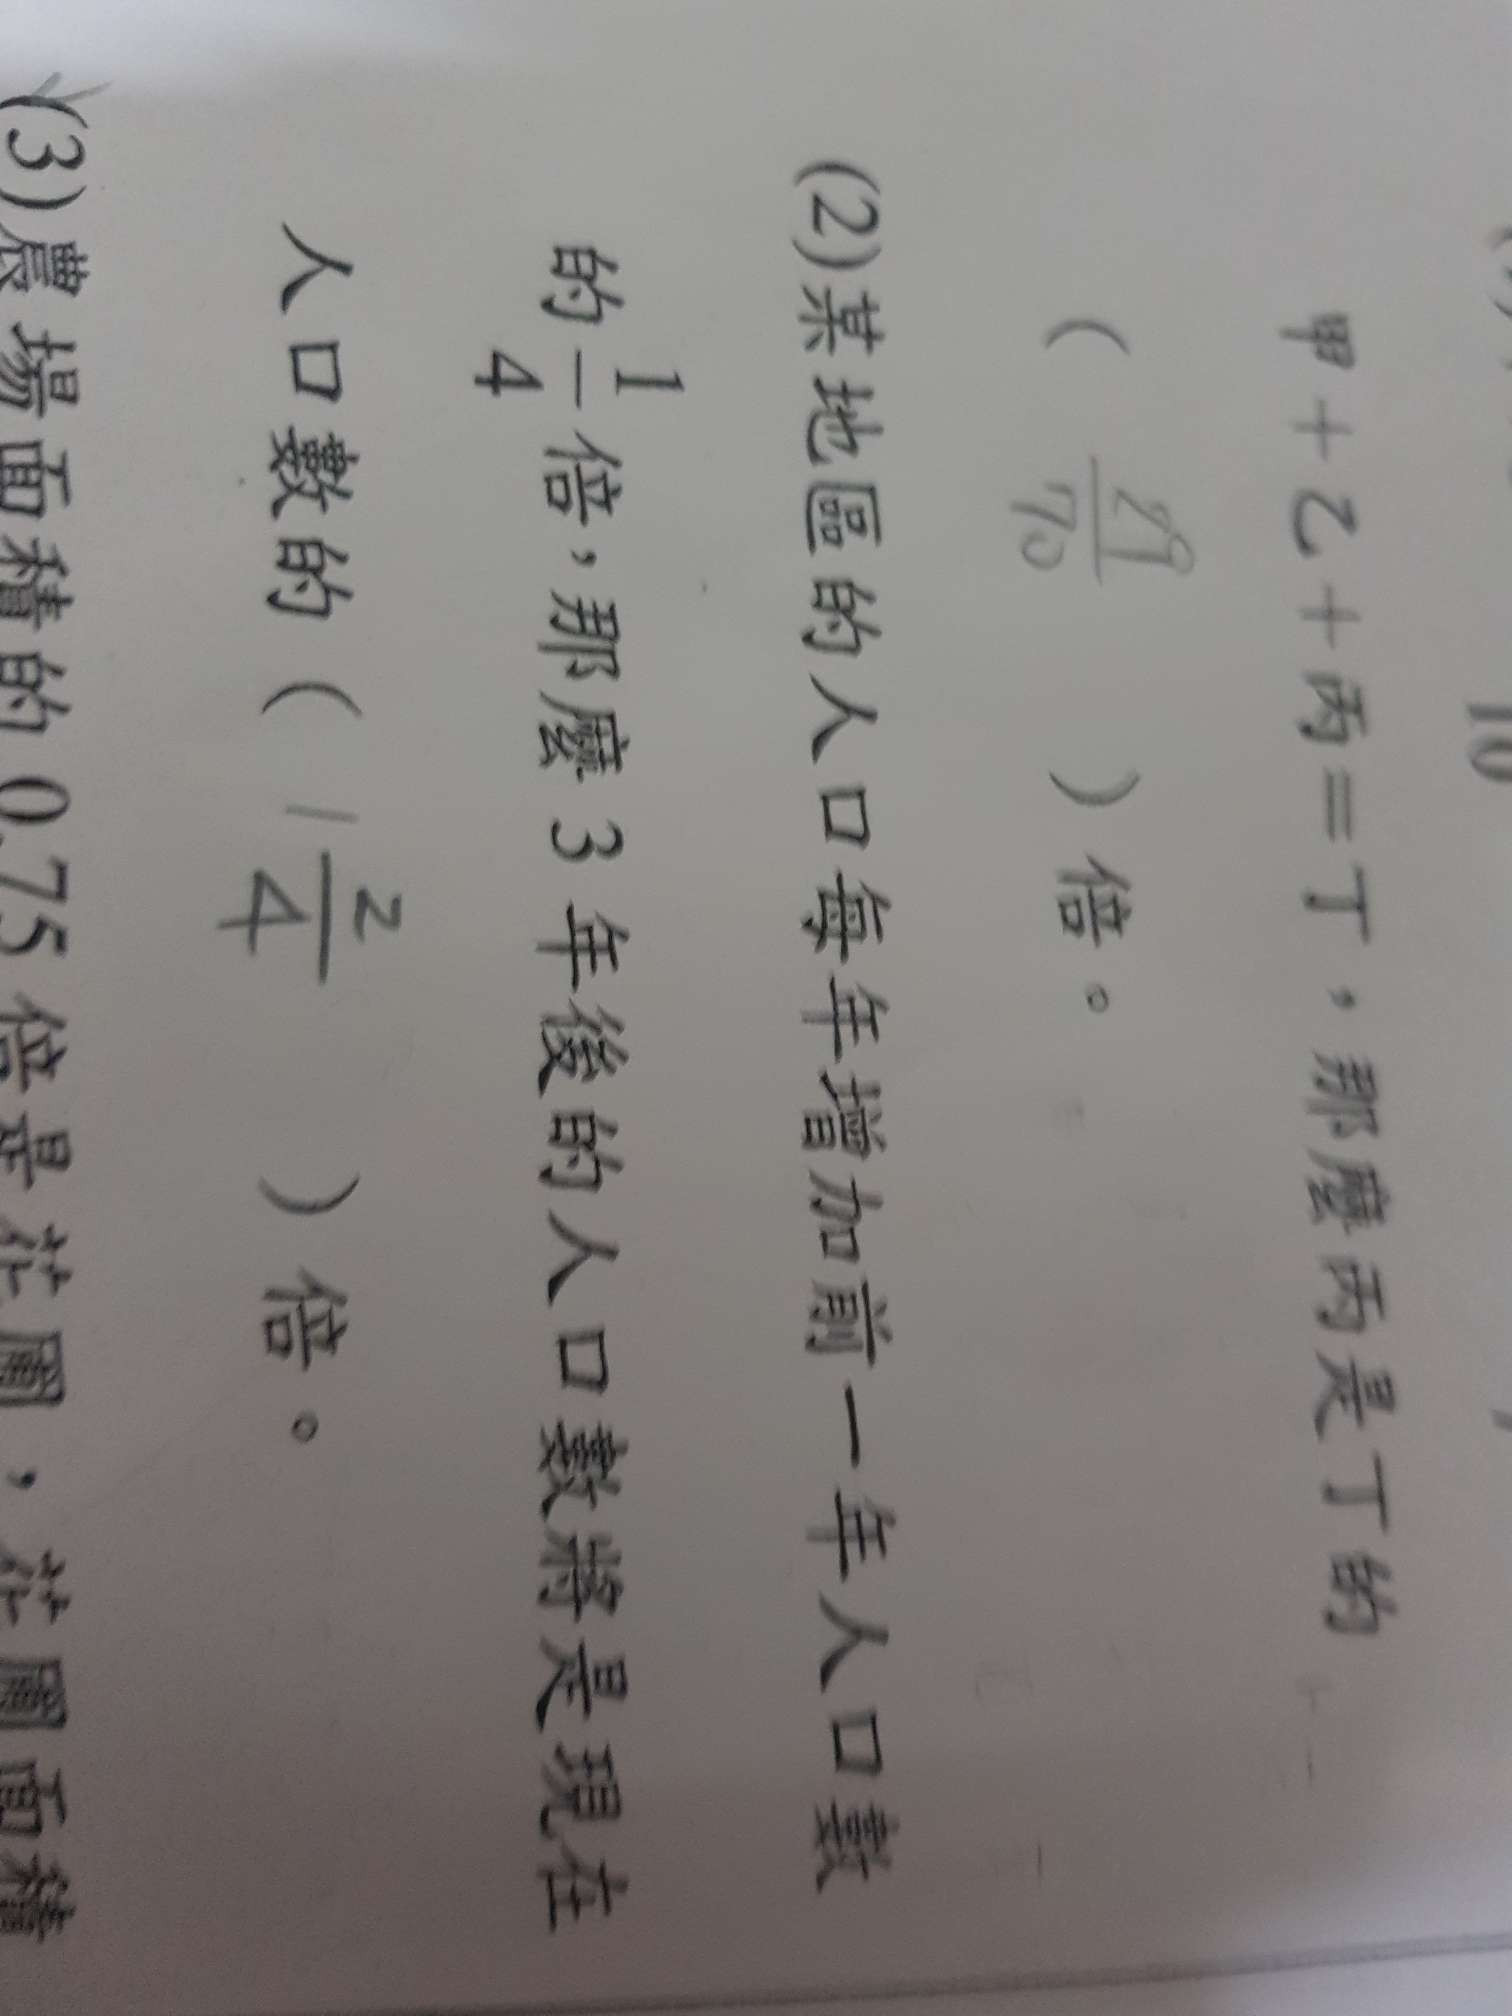 10
甲＋乙＋丙＝丁，那麼丙是丁的
（ 29/70 ）倍。
(2)某地區的人口每年增加前一年人口數
的 1/4 倍，那麼 3 年後的人口數將是現在
人口數的（ 1 2/4 ）倍。
(3)農場面積的 0.75 倍是花圃，花圃面積